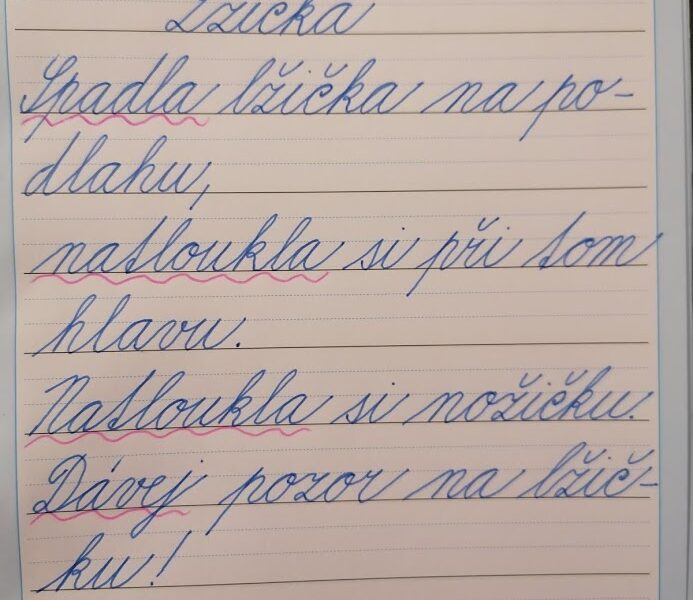 Lžička
Spadla lžička na po-
dlahu,
natloukla si při tom
hlavu.
Natloukla si nožičku.
Dávej pozor na lžič-
ku!